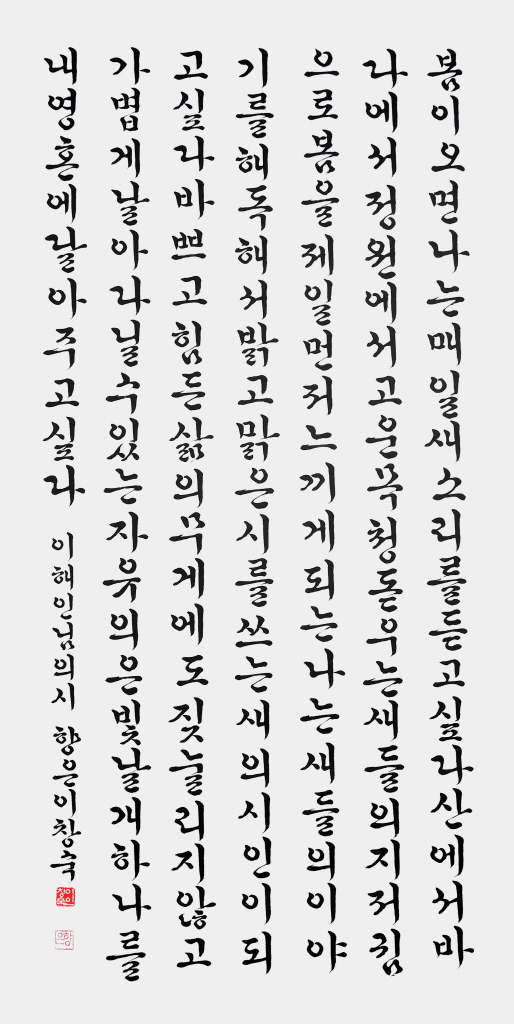 봄이오면나는매일새소리를듣고싶다산에서바
다에서정원에서고운목청돋우는새들의지저귐
으로봄을제일먼저느끼게되는나는새들의이야
기를해독해서밝고맑은시를쓰는새의시인이되
고싶다바쁘고힘든삶의무게에도짓눌리지않고
가볍게날아다닐수있는자유의은빛날개하나를
내영혼에달아주고싶다 이해인님의시 향은이창숙